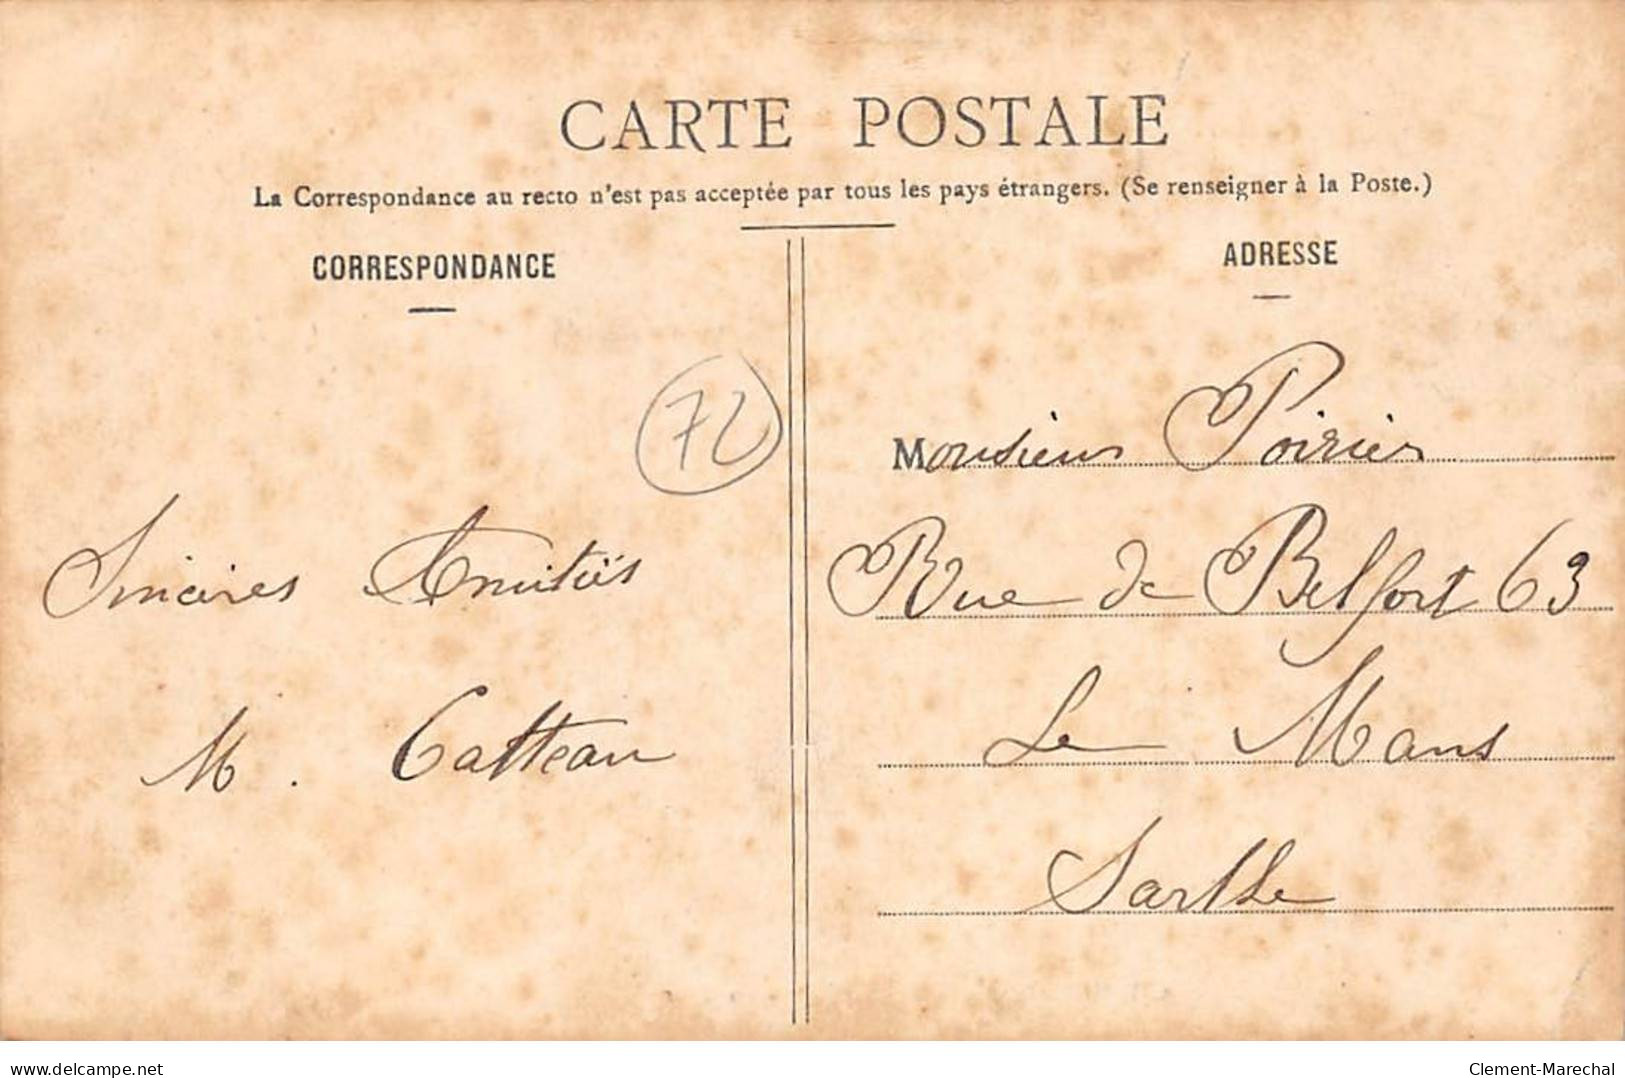 CARTE POSTALE
La Correspondance au recto n'est pas acceptée par tous les pays étrangers. (Se renseigner à la Poste.)
CORRESPONDANCE
72
Sincères Amitiés
M. Catteau
ADRESSE
Monsieur Poirier
Rue de Belfort 63
Le Mans
Sarthe
delcampe.net
Clement-Marechal